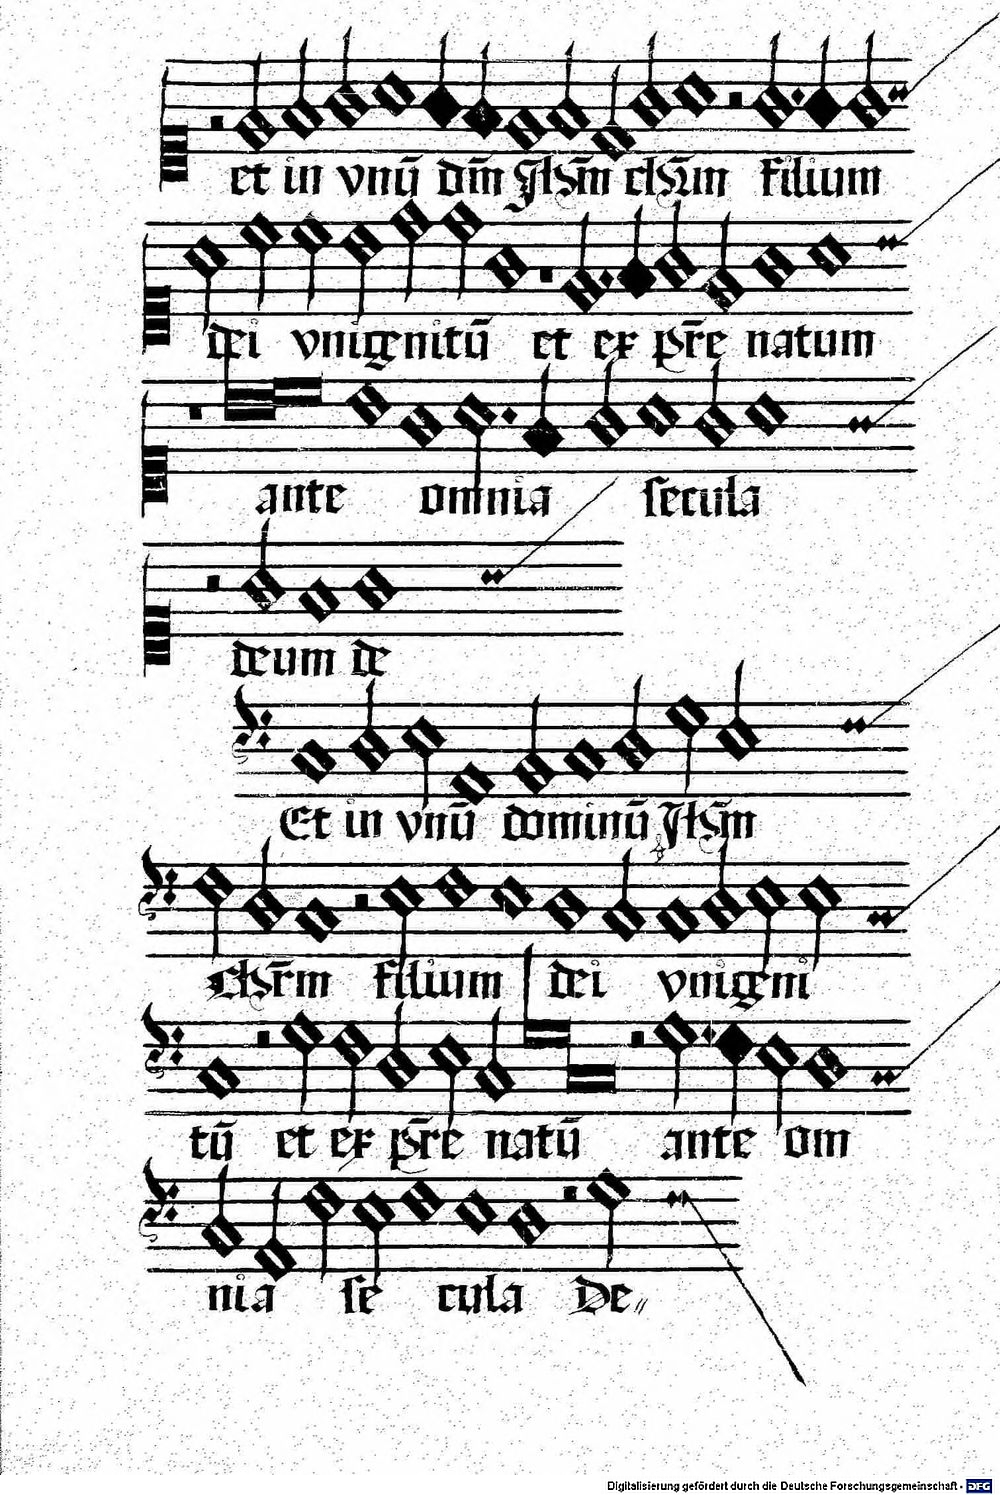 et in vnū dm̄ Jhm̄ chrm̄ filium
dei vnigenitū et ex pr̄e natum
ante omnia secula
deum de
Et in vnū dominū Jhm̄
Chr̄m filium dei vnigeni
tū et ex pr̄e natū ante om
nia se cula De〃
Digitalisierung gefördert durch die Deutsche Forschungsgemeinschaft - DFG